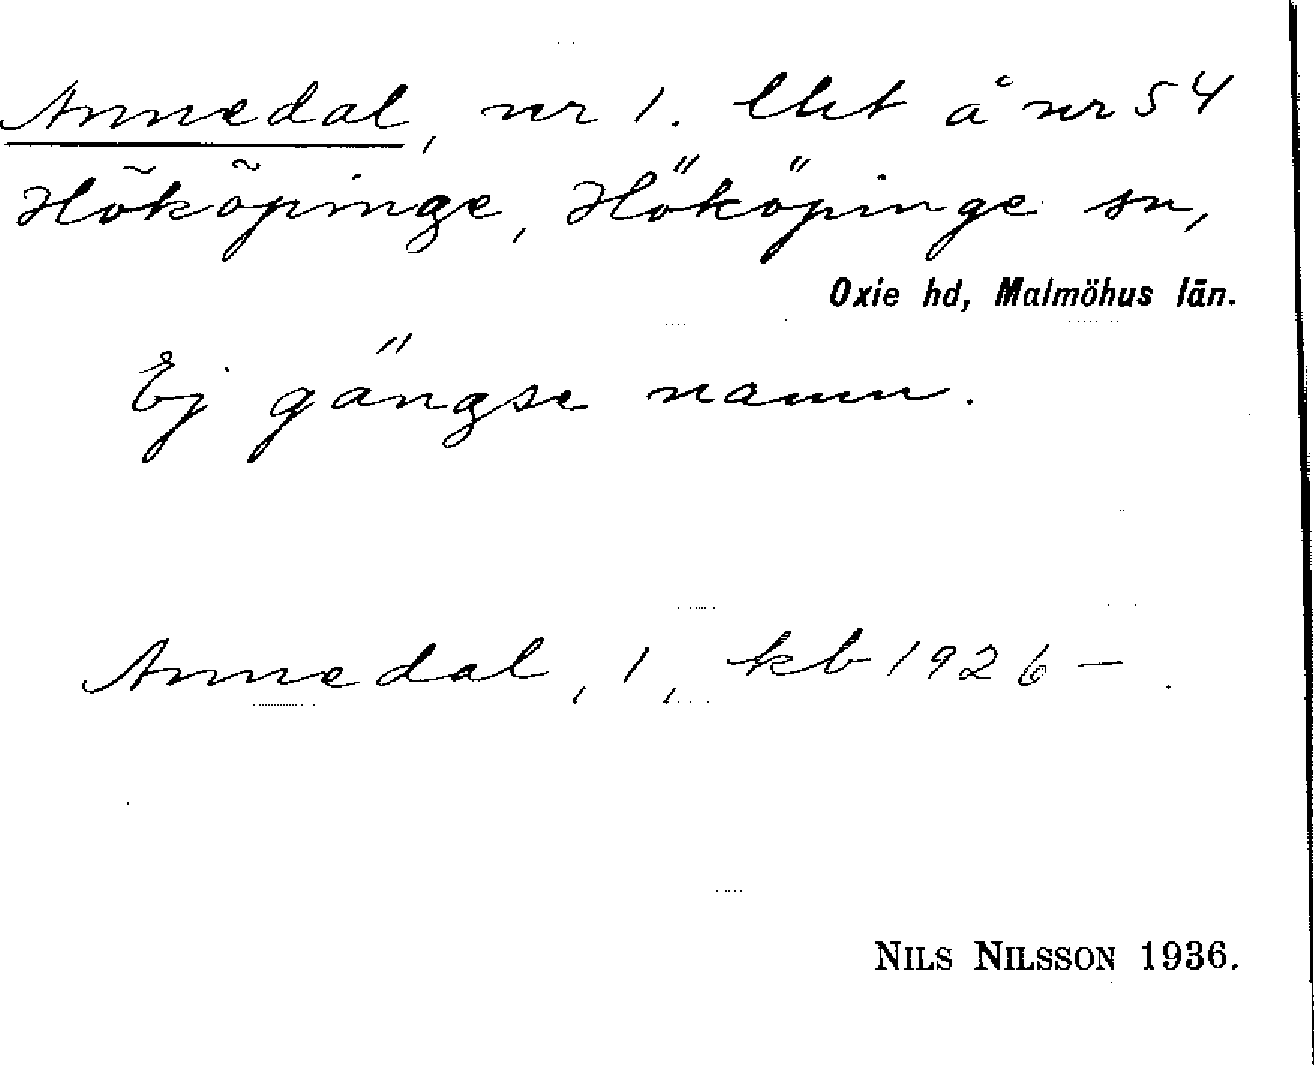 Annedal, nr 1. Lht å nr 54
Hököpinge, Hököpinge sn,
Oxie hd, Malmöhus län.
Ej gängse namn.
Annedal, 1, kb 1926 – .
NILS NILSSON 1936.